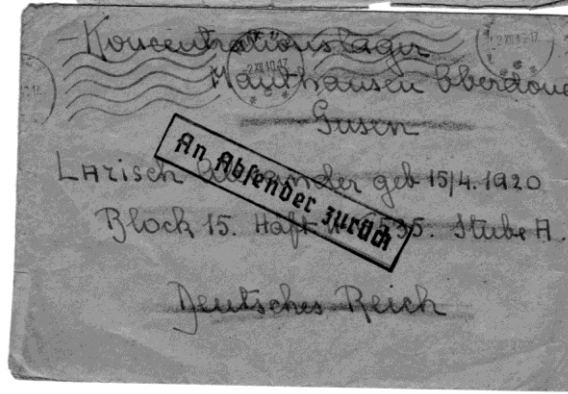 - Koncentrationslager
Mauthausen Oberdonau
Gusen
An Absender zurück
Larisch geb 15/4. 1920
Block 15. Häft 35. Stube A.
Deutsches Reich